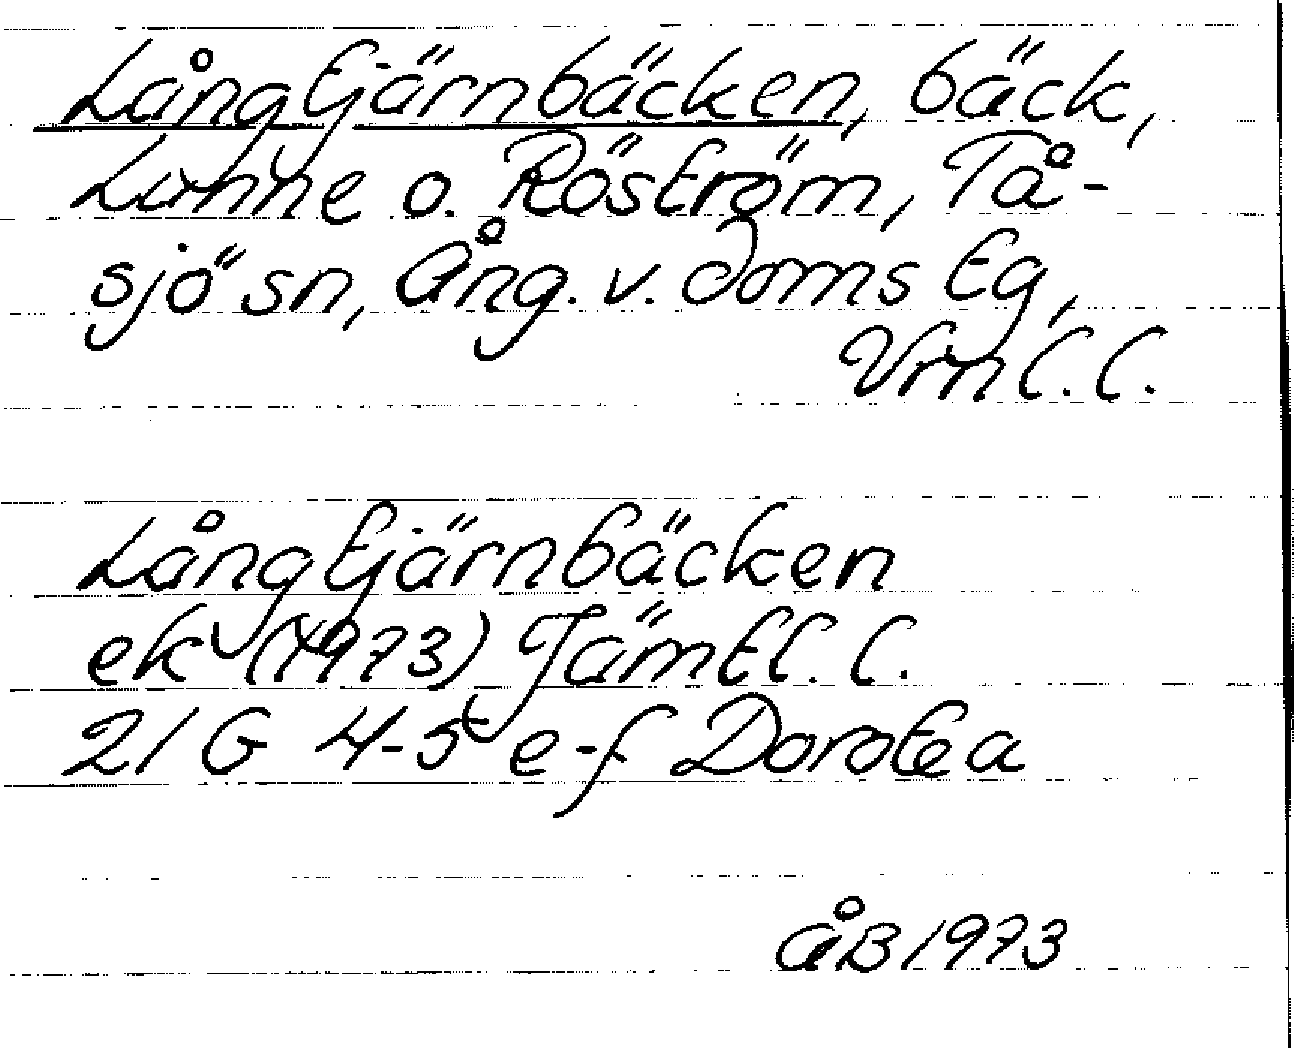 Långtjärnbäcken, bäck,
Lunne o. Röström, Tå-
sjö sn, Ång. v. doms tg,
Vrnl. l.
Långtjärnbäcken
ek (1973) Jämtl. l.
21 G 4-5 e-f Dorotea
ÅB 1973